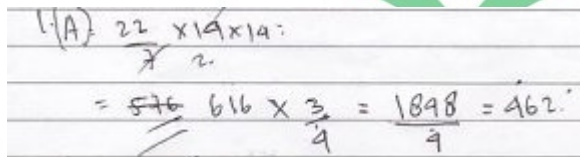 1.(A). 22/7 × 14 × 14:
2.
= 576 616 × 3/4 = 1848/4 = 462.